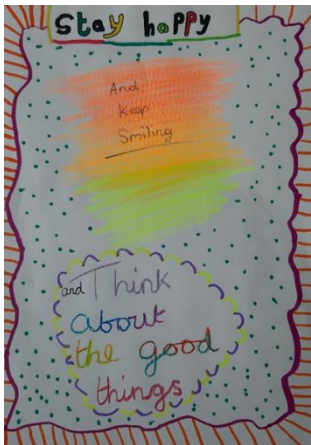 Stay happy
And
Keep
Smiling
and Think
about
the good
things